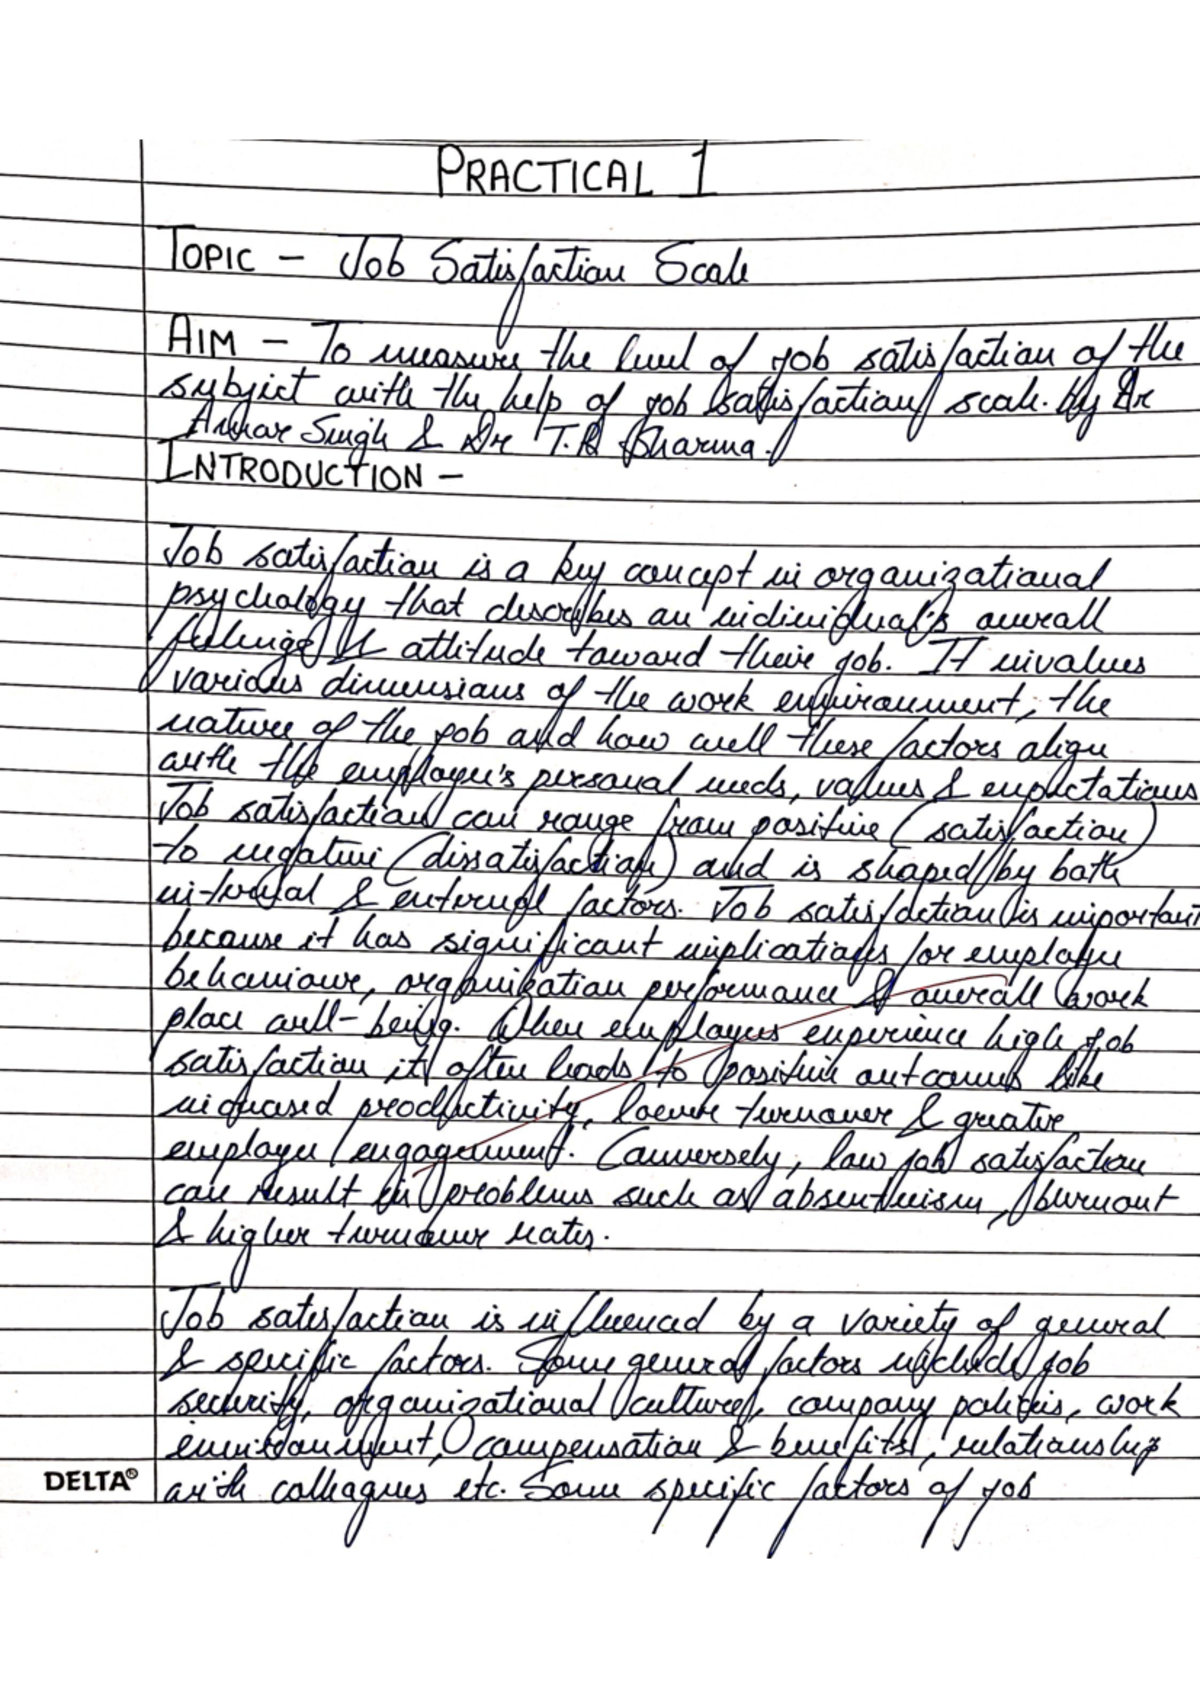 PRACTICAL 1
TOPIC - Job Satisfaction Scale
AIM - To measure the level of job satisfaction of the
subject with the help of job satisfaction scale. by Dr
Amar Singh & Dr T.R Sharma.
INTRODUCTION -
Job satisfaction is a key concept in organizational
psychology that describes an individual's overall
feelings & attitude toward their job. It involves
various dimensions of the work environment, the
nature of the job and how well these factors align
with the employee's personal needs, values & expectations
Job satisfaction can range from positive (satisfaction)
to negative (dissatisfaction) and is shaped by both
internal & external factors. Job satisfaction is important
because it has significant implications for employee
behaviour, organization performance & overall work
place well-being. When employees experience high job
satisfaction it often leads to positive outcomes like
increased productivity, lower turnover & greater
employee engagement. Conversely, low job satisfaction
can result in problems such as absenteeism, burnout
& higher turnover rates.
Job satisfaction is influenced by a variety of general
& specific factors. Some general factors include job
security, organizational culture, company policies, work
environment, compensation & benefits, relationship
DELTA® with colleagues etc. Some specific factors of job